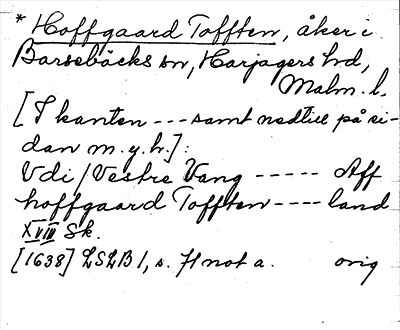 * Hoffgaard Tofften, åker i
Barsebäcks sn, Harjagers hd,
Malm. l.
[I kanten --- samt nedtill på si-
dan m.y.h.]:
Vdi / Vestre Vang ----- Aff
hoffgaard Tofften ---- land
XVIII Sk.
[1638] LSLB 1, s. 71 not a. orig